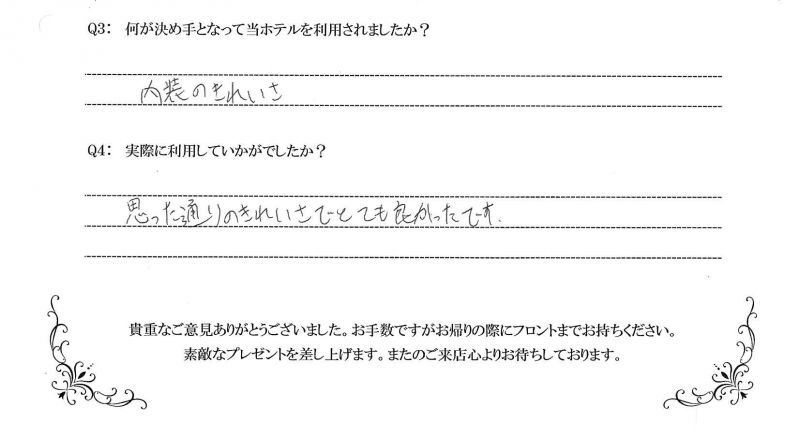 Q3： 何が決め手となって当ホテルを利用されましたか？
内装のきれいさ
Q4： 実際に利用していかがでしたか？
思った通りのきれいさでとても良かったです.
貴重なご意見ありがとうございました。お手数ですがお帰りの際にフロントまでお持ちください。
素敵なプレゼントを差し上げます。またのご来店心よりお待ちしております。